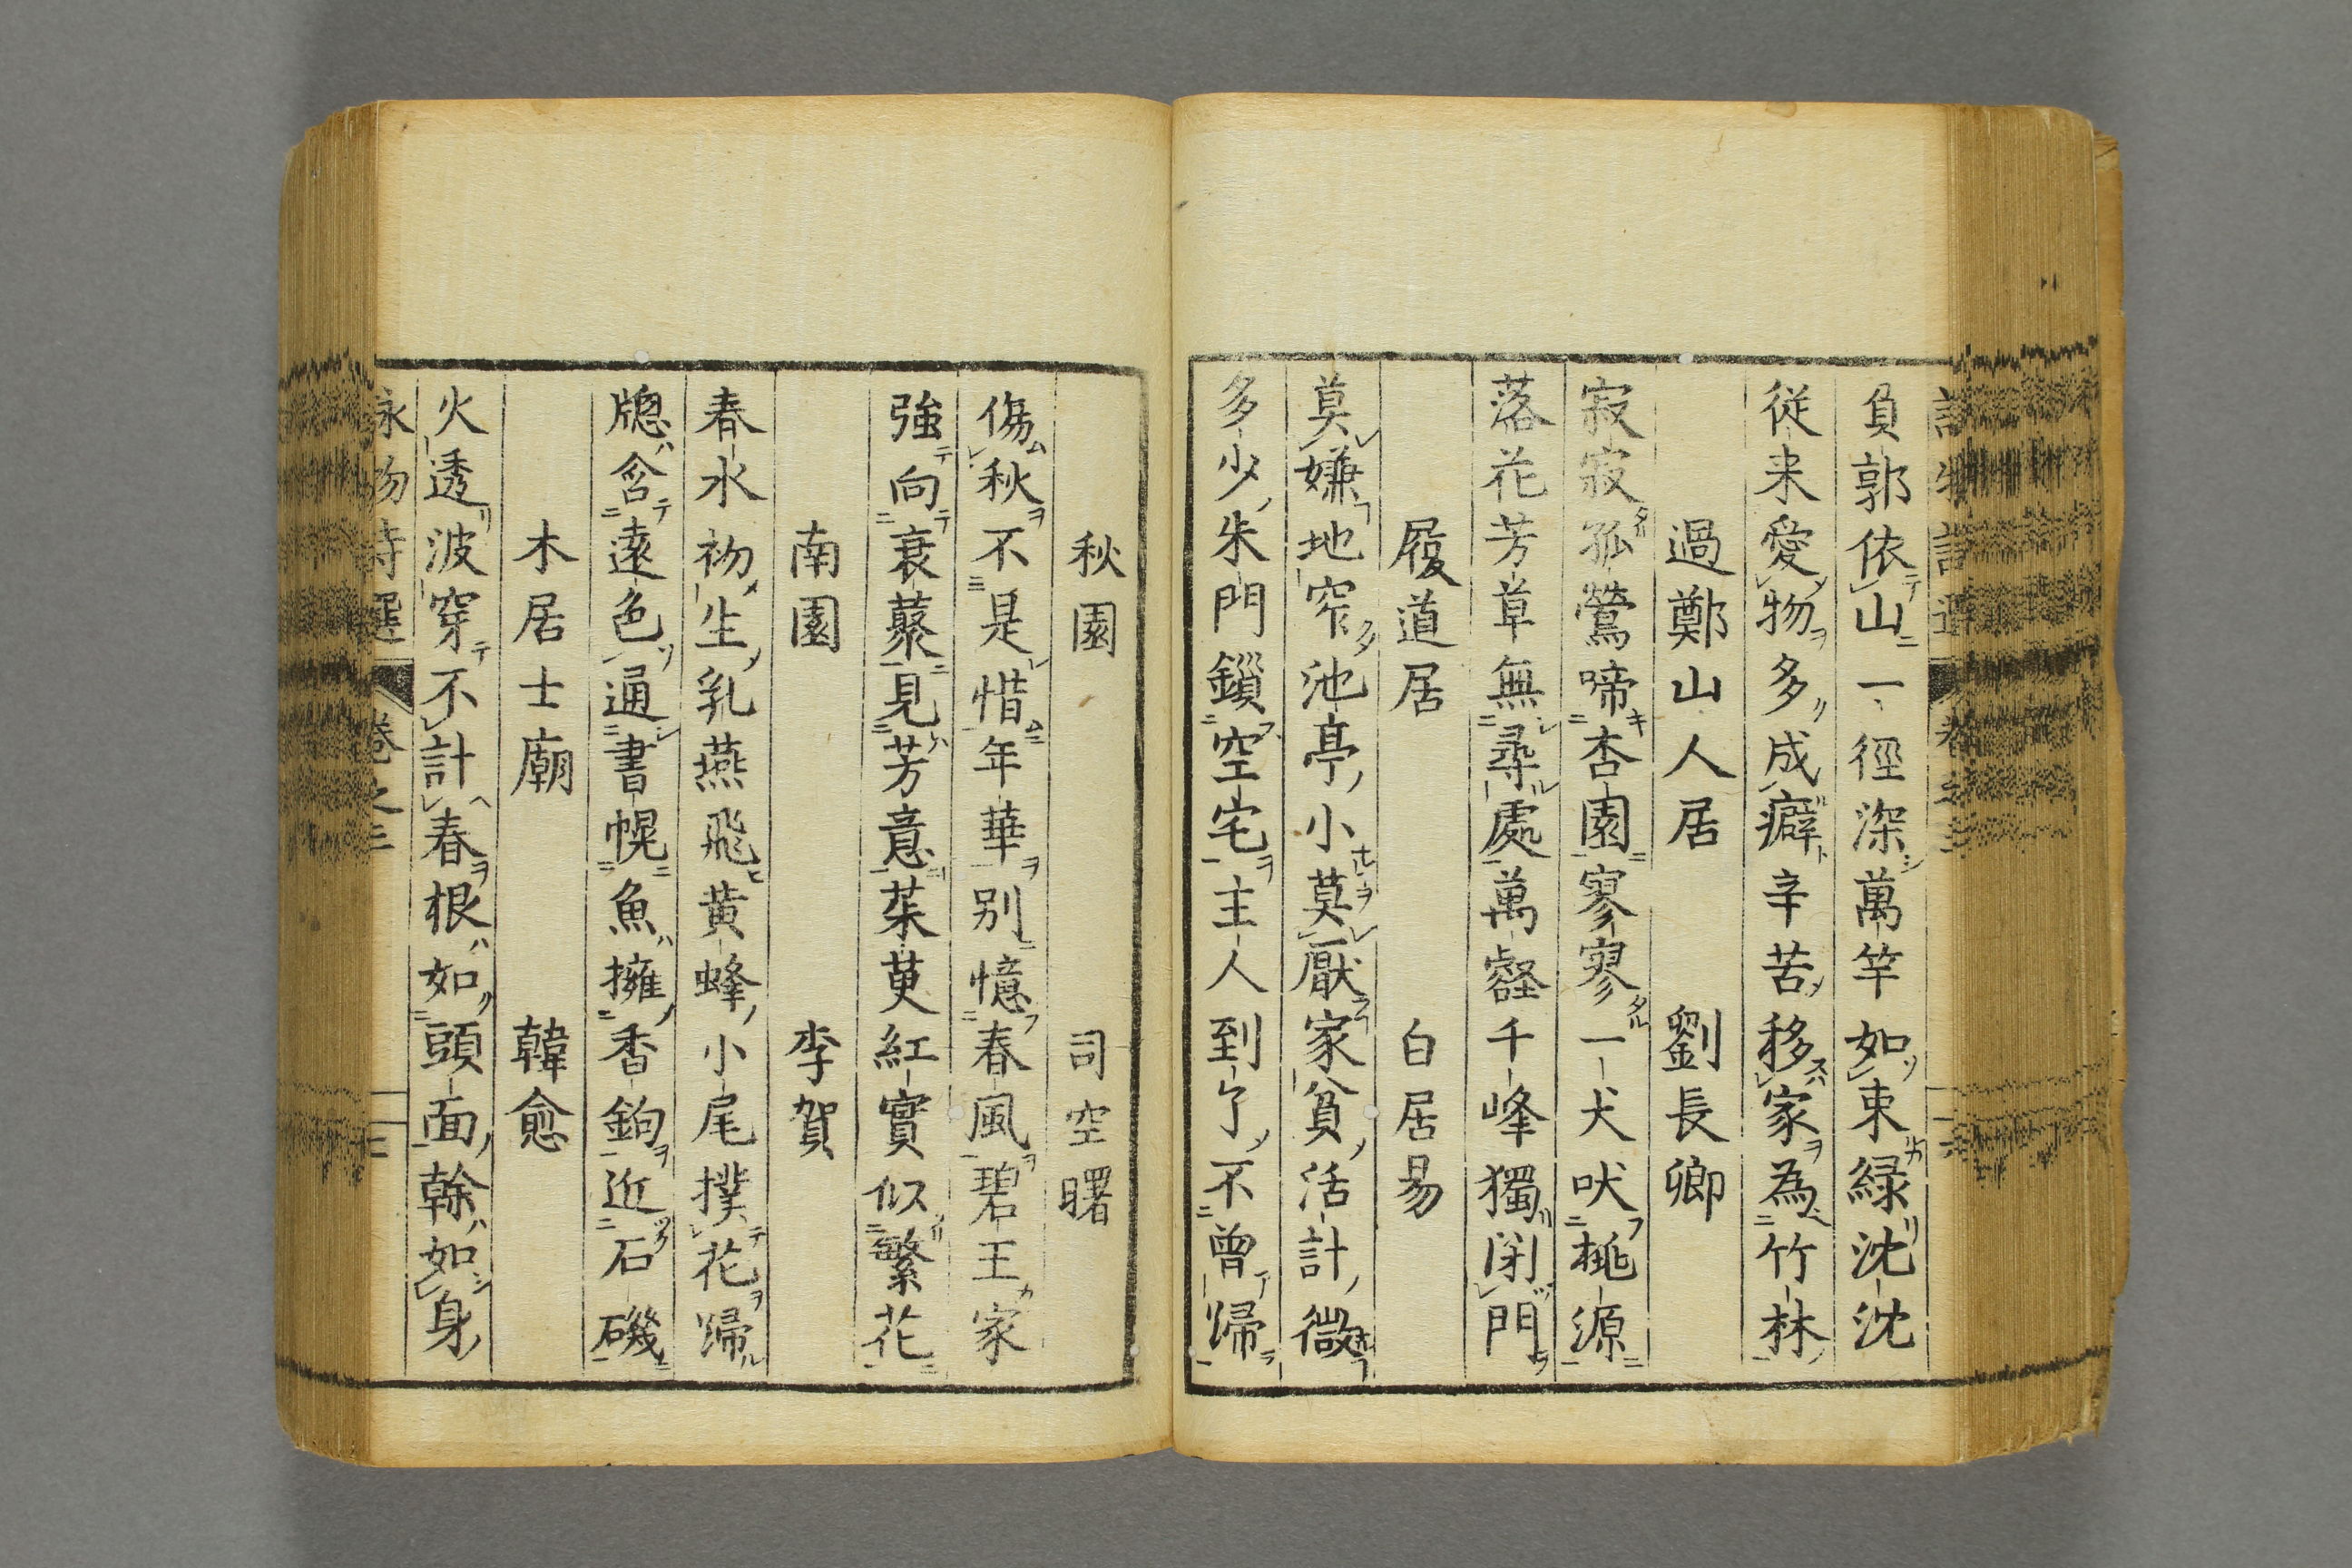 負郭依山一徑深萬竿如束緑沈沈
従来愛物多成癖辛苦移家為竹林
過鄭山人居 劉長卿
寂寂孤鶯啼杏園寥寥一犬吠桃源
落花芳草無尋處萬壑千峰獨閉門
履道居 白居易
莫嫌地窄池亭小莫厭家貧活計微
多少朱門鎻空宅主人到了不曽歸
秋園 司空曙
傷秋不是惜年華别憶春風碧玉家
強向衰藂見芳意茱萸紅實似繁花
南園 李賀
春水初生乳燕飛黄蜂小尾撲花歸
牎含遠色通書幌魚擁香鉤近石磯
木居士廟 韓愈
火透波穿不計春根如頭面幹如身
詠物詩選 卷之三